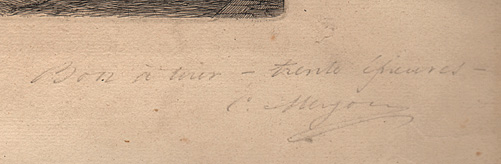 Bon à tirer – trente épreuves –
C. Meryon